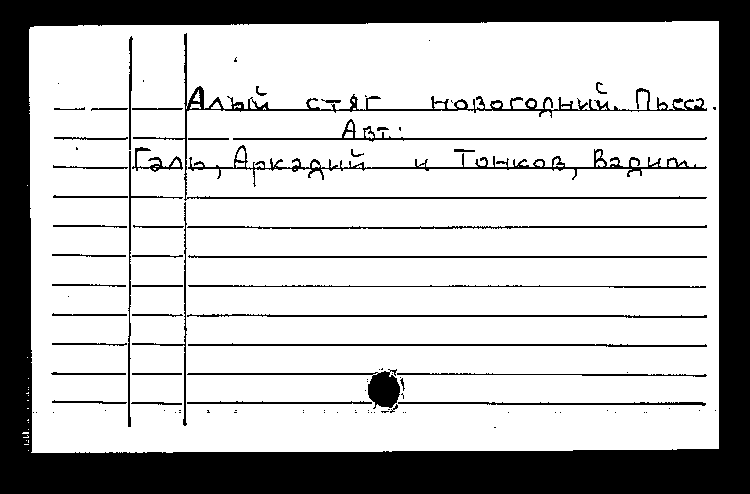 Алый стяг новогодний. Пьеса.
Авт.:
Галь, Аркадий и Тонков, Вадим.